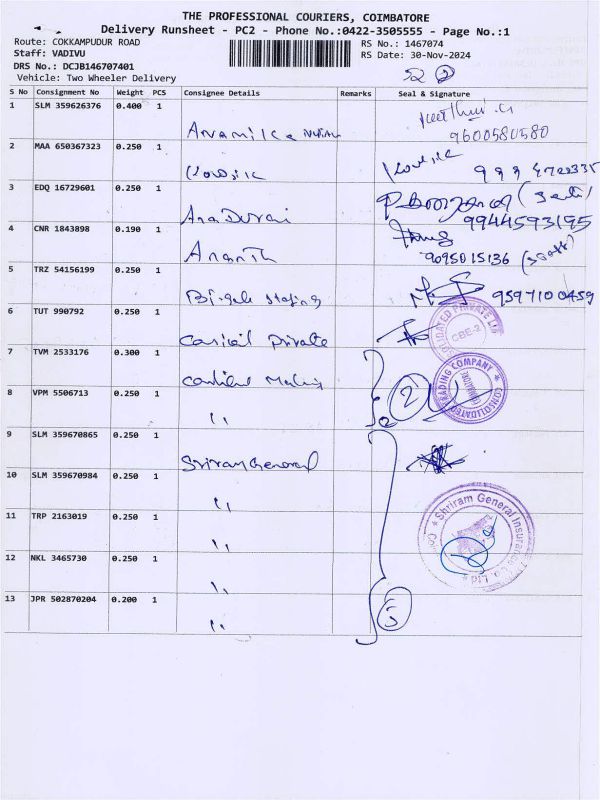 THE PROFESSIONAL COURIERS, COIMBATORE
Delivery Runsheet - PC2 - Phone No.:0422-3505555 - Page No.:1
Route: COKKAMPUDUR ROAD
RS No.: 1467074
Staff: VADIVU
RS Date: 30-Nov-2024
DRS No.: DCJB146707401
Vehicle: Two Wheeler Delivery
S No Consignment No Weight PCS Consignee Details Remarks Seal & Signature
1 SLM 359626376 0.400 1
9600580580
2 MAA 650367323 0.250 1
3 EDQ 16729601 0.250 1
9944593195
4 CNR 1843898 0.190 1 Ananth
9095015136
5 TRZ 54156199 0.250 1
9597100459
6 TUT 990792 0.250 1 Private
CBE-2
7 TVM 2533176 0.300 1
CONSOLIDATED TRADING COMPANY
COIMBATORE
2
8 VPM 5506713 0.250 1 ,,
9 SLM 359670865 0.250 1 Sriram General
10 SLM 359670984 0.250 1 ,,
Shriram General Insurance Co. Ltd
11 TRP 2163019 0.250 1 ,,
12 NKL 3465730 0.250 1 ,,
13 JPR 502870204 0.200 1 ,,
5